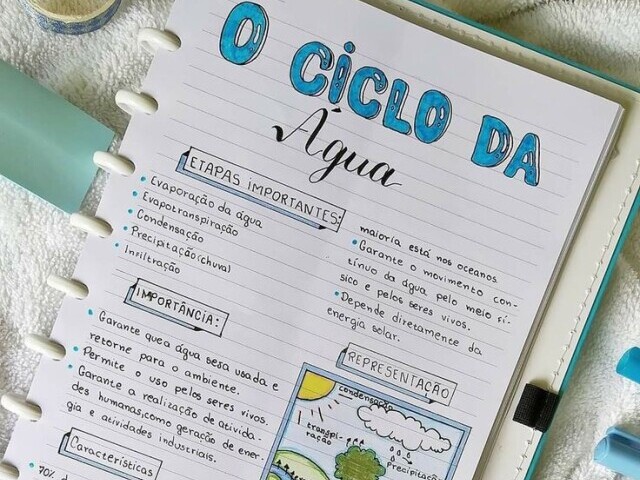 O CICLO DA
Água
ETAPAS IMPORTANTES:
• Evaporação da água
• Evapotranspiração
• Condensação
• Precipitação (chuva)
• Infiltração
IMPORTÂNCIA:
• Garante que a água seja usada e
retorne para o ambiente.
• Permite o uso pelos seres vivos.
• Garante a realização de ativida-
des humanas, como geração de ener-
gia e atividades industriais.
Características
• 70% d
maioria está nos oceanos.
• Garante o movimento con-
tínuo da água pelo meio fí-
sico e pelos seres vivos.
• Depende diretamente da
energia solar.
REPRESENTAÇÃO
condensação
transpi-
ração
precipitação